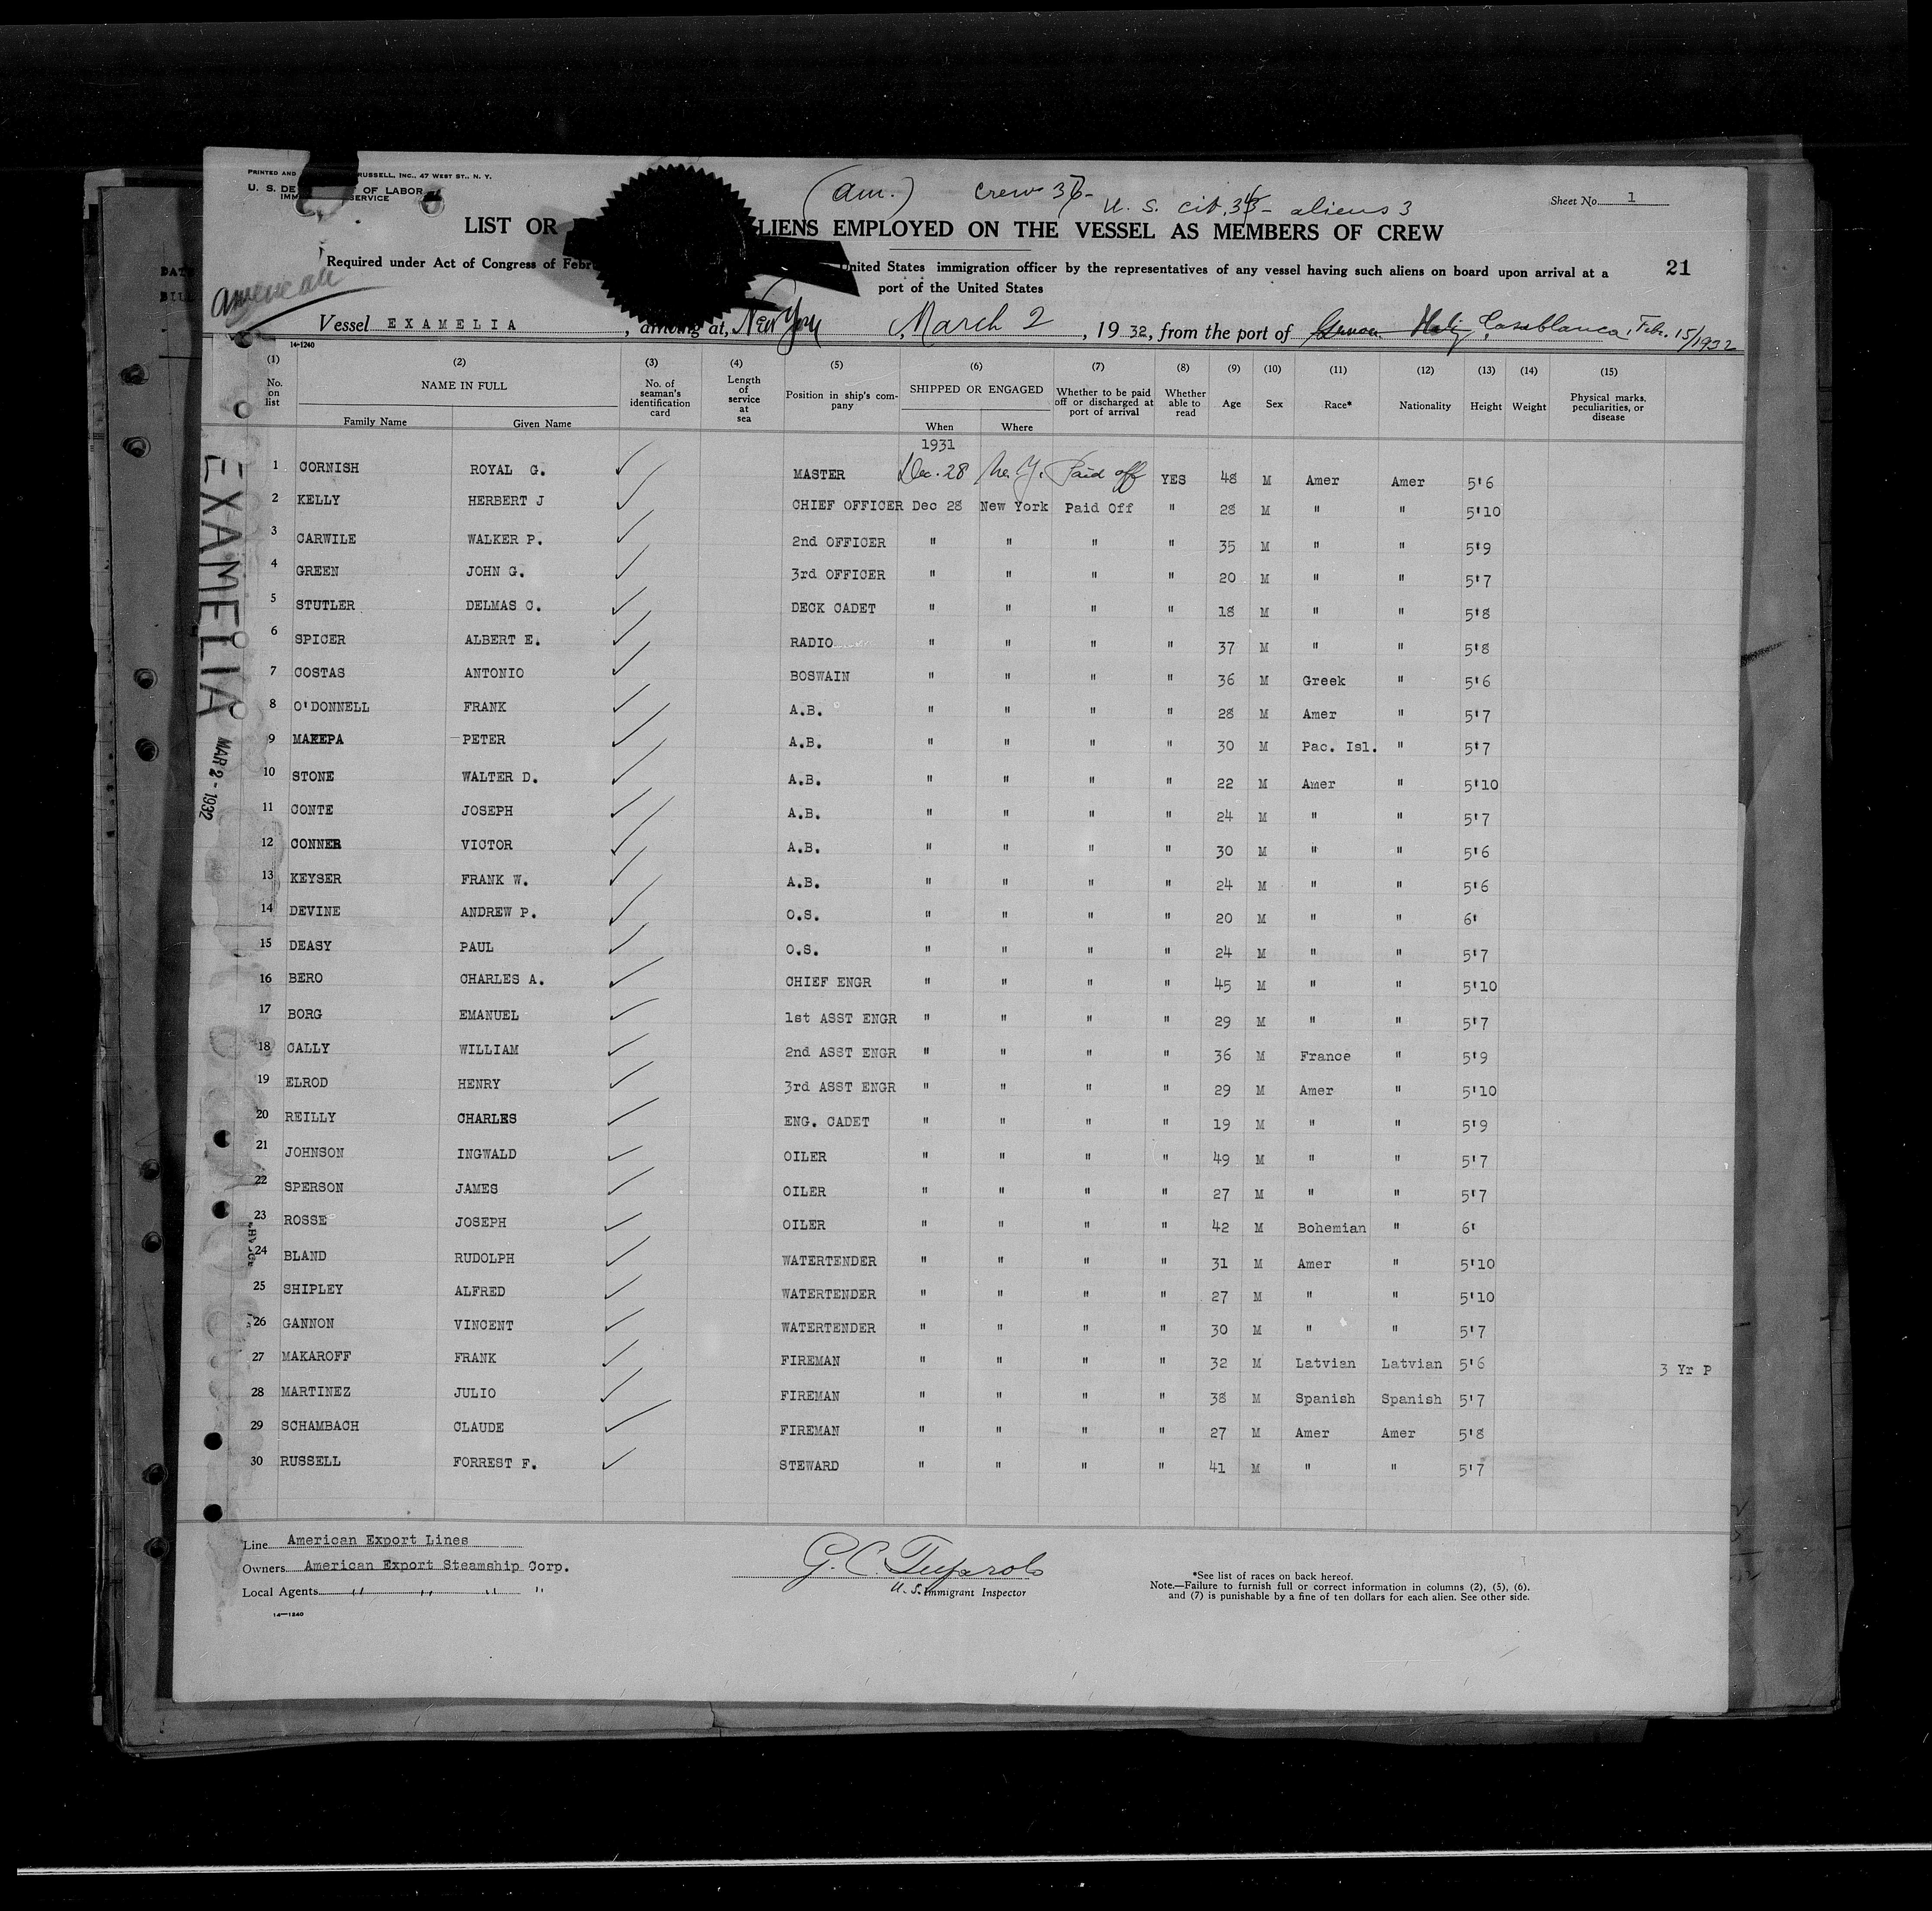 PRINTED AND RUSSELL, INC., 47 WEST ST., N. Y.
U. S. DE OF LABOR
IMM SERVICE
(Am.) Crew 37-
U. S. cit. 34- aliens 3
Sheet No. 1
LIST OR LIENS EMPLOYED ON THE VESSEL AS MEMBERS OF CREW
Required under Act of Congress of Febr United States immigration officer by the representatives of any vessel having such aliens on board upon arrival at a
port of the United States
21
American
Vessel EXAMELIA, arriving at, New York, March 2, 1932, from the port of Casablanca, Febr. 15/1932
14-1240
(1) (2) (3) (4) (5) (6) (7) (8) (9) (10) (11) (12) (13) (14) (15)
No. on list NAME IN FULL Family Name Given Name No. of seaman's identification card Length of service at sea Position in ship's company SHIPPED OR ENGAGED When Where Whether to be paid off or discharged at port of arrival Whether able to read Age Sex Race* Nationality Height Weight Physical marks, peculiarities, or disease
1931
1 CORNISH ROYAL G. MASTER Dec. 28 N. Y. Paid off YES 48 M Amer Amer 5'6
2 KELLY HERBERT J CHIEF OFFICER Dec 28 New York Paid Off " 28 M " " 5'10
3 CARWILE WALKER P. 2nd OFFICER " " " " 35 M " " 5'9
4 GREEN JOHN G. 3rd OFFICER " " " " 20 M " " 5'7
5 STUTLER DELMAS C. DECK CADET " " " " 18 M " " 5'8
6 SPICER ALBERT E. RADIO " " " " 37 M " " 5'8
7 COSTAS ANTONIO BOSWAIN " " " " 36 M Greek " 5'6
8 O'DONNELL FRANK A.B. " " " " 28 M Amer " 5'7
9 MAKEPA PETER A.B. " " " " 30 M Pac. Isl. " 5'7
10 STONE WALTER D. A.B. " " " " 22 M Amer " 5'10
11 CONTE JOSEPH A.B. " " " " 24 M " " 5'7
12 CONNER VICTOR A.B. " " " " 30 M " " 5'6
13 KEYSER FRANK W. A.B. " " " " 24 M " " 5'6
14 DEVINE ANDREW P. O.S. " " " " 20 M " " 6'
15 DEASY PAUL O.S. " " " " 24 M " " 5'7
16 BERO CHARLES A. CHIEF ENGR " " " " 45 M " " 5'10
17 BORG EMANUEL 1st ASST ENGR " " " " 29 M " " 5'7
18 CALLY WILLIAM 2nd ASST ENGR " " " " 36 M France " 5'9
19 ELROD HENRY 3rd ASST ENGR " " " " 29 M Amer " 5'10
20 REILLY CHARLES ENG. CADET " " " " 19 M " " 5'9
21 JOHNSON INGWALD OILER " " " " 49 M " " 5'7
22 SPERSON JAMES OILER " " " " 27 M " " 5'7
23 ROSSE JOSEPH OILER " " " " 42 M Bohemian " 6'
24 BLAND RUDOLPH WATERTENDER " " " " 31 M Amer " 5'10
25 SHIPLEY ALFRED WATERTENDER " " " " 27 M " " 5'10
26 GANNON VINCENT WATERTENDER " " " " 30 M " " 5'7
27 MAKAROFF FRANK FIREMAN " " " " 32 M Latvian Latvian 5'6 3 Yr P
28 MARTINEZ JULIO FIREMAN " " " " 38 M Spanish Spanish 5'7
29 SCHAMBACH CLAUDE FIREMAN " " " " 27 M Amer Amer 5'8
30 RUSSELL FORREST F. STEWARD " " " " 41 M " " 5'7
EXAMELIA
MAR 2 - 1932
Line American Export Lines
Owners American Export Steamship Corp.
Local Agents " " " "
14-1240
G. C.
U. S. Immigrant Inspector
*See list of races on back hereof.
Note.—Failure to furnish full or correct information in columns (2), (5), (6),
and (7) is punishable by a fine of ten dollars for each alien. See other side.